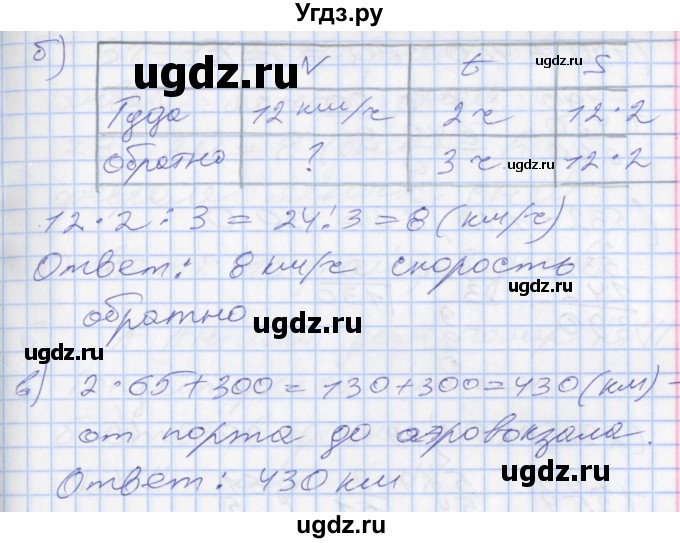 Угдз.ру
б)
ugdz.ru V t S
Туда 12 км/ч 2 ч 12·2
обратно ? 3 ч ugdz.ru 12·2
12·2:3 = 24:3 = 8 (км/ч)
Ответ: 8 км/ч скорость
ugdz.ru
обратно ugdz.ru
в) 2·65+300 = 130+300 = 430 (км) -
ugdz.ru
от порта до аэровокзала.
Ответ: 430 км
ugdz.ru
ugdz.ru